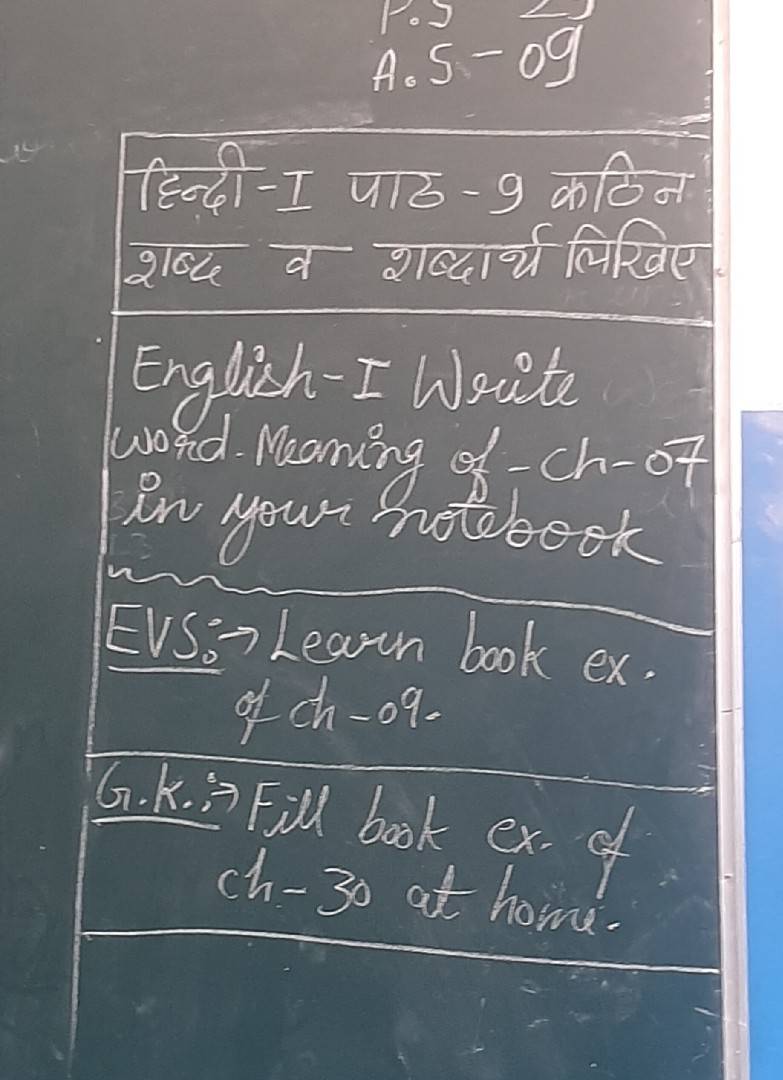 P.S 23
A.S - 09
हिन्दी - I पाठ - 9 कठिन
शब्द व शब्दार्थ लिखिए
English - I Write
word. Meaning of - ch - 07
in your notebook
EVS:→ Learn book ex.
of ch - 09.
G.K.:→ Fill book ex. of
ch - 30 at home.